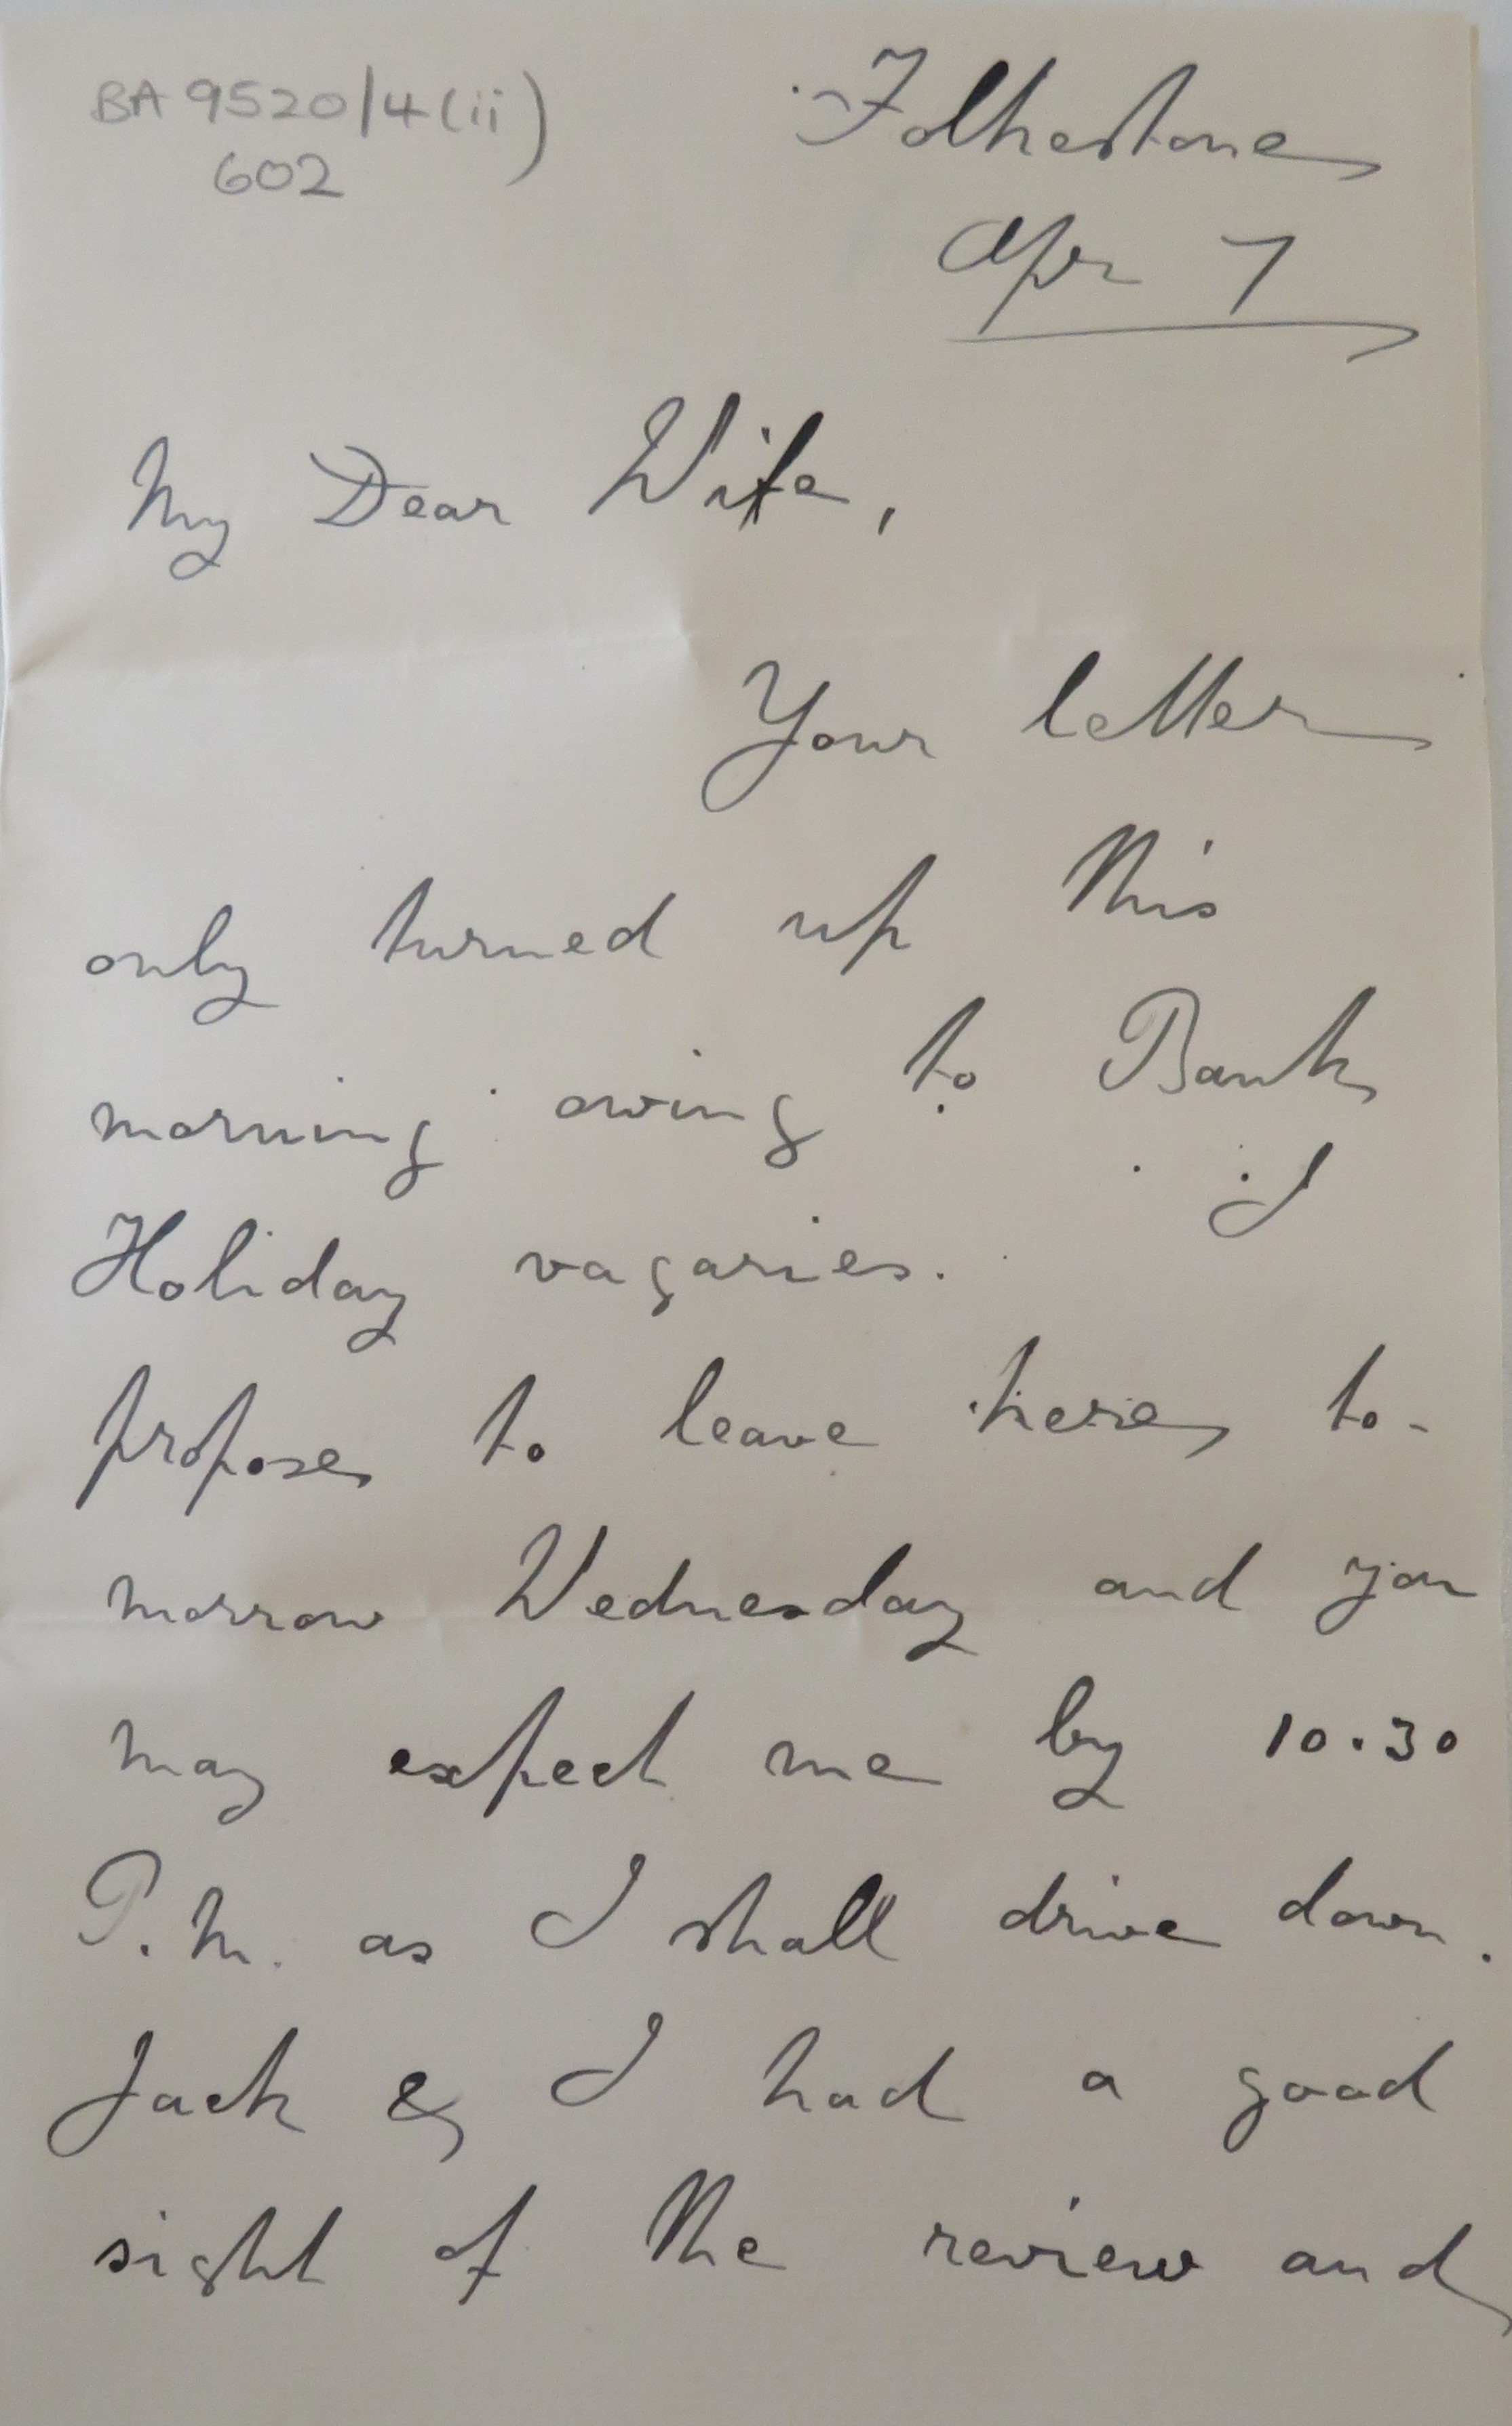 BA 9520/4(ii)
602
Folkestone
Apr 7
My Dear Wife,
Your letter
only turned up this
morning owing to Bank
Holiday vagaries. I
propose to leave here to-
morrow Wednesday and you
may expect me by 10.30
P.M. as I shall drive down.
Jack & I had a good
sight of the review and